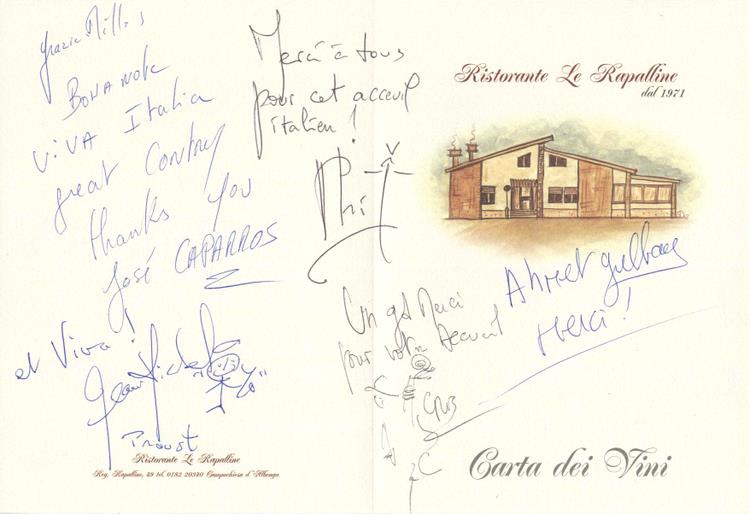 Grazie Mille
BONA NOTE
ViVA Italia
great Contry
thanks you
José CAPARROS
et Viva!
Jean Michel
Proust
Ristorante Le Rapalline
Reg. Rapalline, 49 tel. 0182 20340 Campochiesa d'Albenga
Merci à tous
pour cet acceuil
italien!
Un gd Merci
pour votre accueil
Ristorante Le Rapalline
dal 1971
Ahmet
Merci!
Carta dei Vini